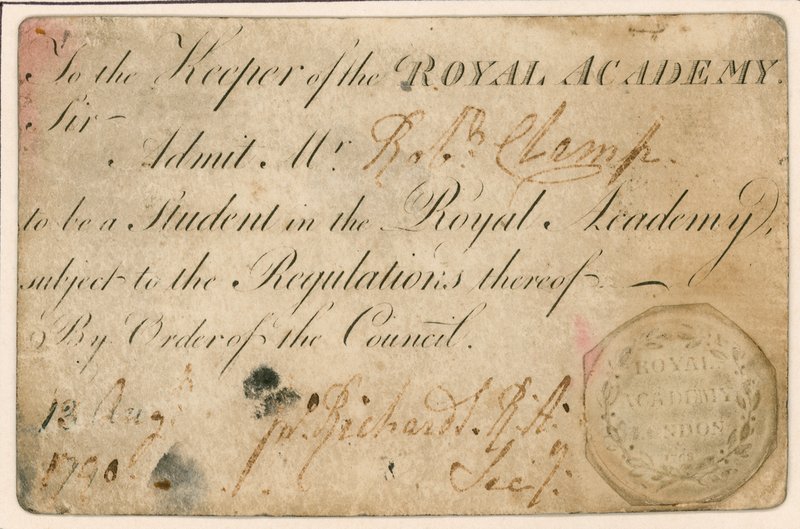 To the Keeper of the ROYAL ACADEMY.
Sir
Admit Mr. Robt. Clamp.
to be a Student in the Royal Academy,
subject to the Regulations thereof
By Order of the Council.
13 Aug.
1790.
Jn. Richards. R.A.
Secy.
ROYAL
ACADEMY
LONDON
1768